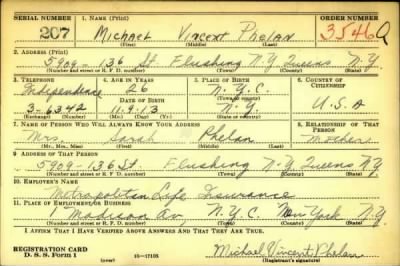 SERIAL NUMBER 1. NAME (Print) ORDER NUMBER
207 Michael Vincent Phelan 3546A
(First) (Middle) (Last)
2. ADDRESS (Print)
5909-136 St. Flushing N.Y. Queens N.Y.
(Number and street or R. F. D. number) (Town) (County) (State)
3. TELEPHONE 4. AGE IN YEARS 5. PLACE OF BIRTH 6. COUNTRY OF CITIZENSHIP
Independence 26 N.Y.C.
DATE OF BIRTH
3-6342 11-9-13 N.Y. U.S.A
(Exchange) (Number) (Mo.) (Day) (Yr.) (State or country)
7. NAME OF PERSON WHO WILL ALWAYS KNOW YOUR ADDRESS 8. RELATIONSHIP OF THAT PERSON
Mrs. Sarah Phelan Mother
(Mr., Mrs., Miss) (First) (Middle) (Last)
9. ADDRESS OF THAT PERSON
5909-136 St. Flushing N.Y. Queens N.Y.
(Number and street or R. F. D. number) (Town) (County) (State)
10. EMPLOYER'S NAME
Metropolitan Life Insurance
11. PLACE OF EMPLOYMENT OR BUSINESS
Madison Av. N.Y.C. New York N.Y.
(Number and street or R. F. D. number) (Town) (County) (State)
I AFFIRM THAT I HAVE VERIFIED ABOVE ANSWERS AND THAT THEY ARE TRUE.
REGISTRATION CARD
D. S. S. Form 1 16-17105 Michael Vincent Phelan
(over) (Registrant's signature)